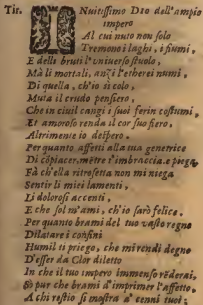 Tir. INuitissimo DIO dell'ampio
impero
Al cui nuto non solo
Tremono i laghi, i fiumi,
E delli bruti l'vniuerso stuolo,
Mà li mortali, anzi l'etherei numi,
Di quella, ch'io sì colo,
Muta il crudo pensiero,
Che in ciuil cangi i suoi ferin costumi,
Et amoroso renda il cor suo fiero,
Altrimente io despero.
Per quanto affetti alla tua genetrice
Di copiacer, mẽtre t'imbraccia, e piega,
Fà ch'ella ritrosetta non mi niega
Sentir li miei lamenti,
Li dolorosi accenti,
E che sol m'ami, ch'io sarò felice.
Per quanto brami del tuo vasto regno
Dilatare i confini
Humil ti priego, che mi rendi degno
D'esser da Clor diletto
In che il tuo impero immenso rẽderai,
So pur che brami d'imprimer l'affetto,
A chi restio si mostra a' cenni tuoi;